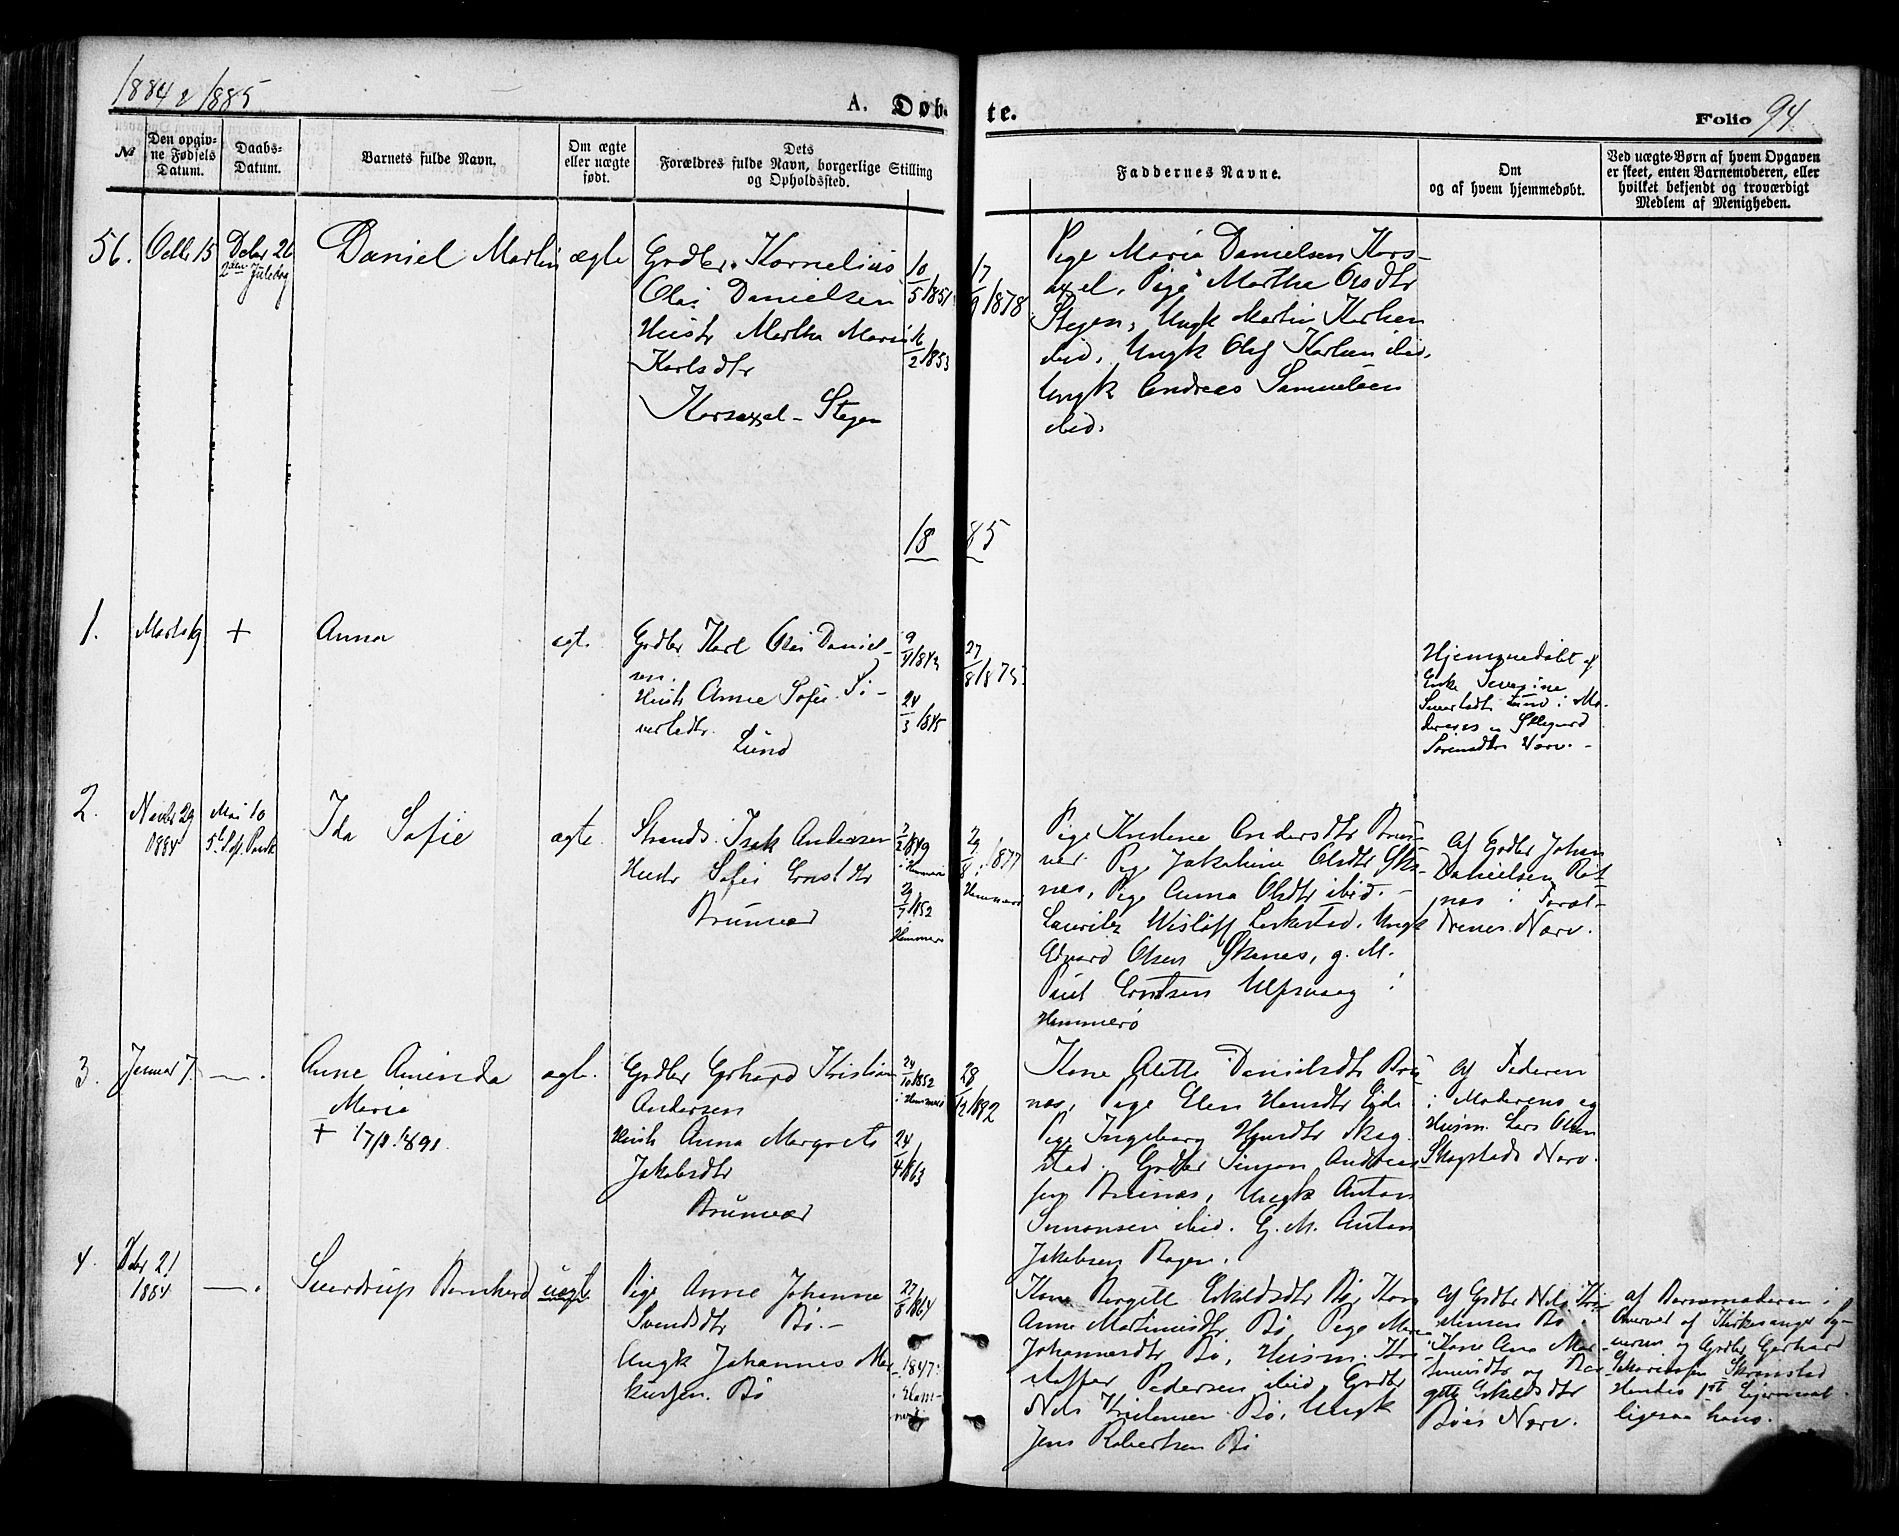 1884 & 1885
A. Døb-
te.
Folio 94.
№
Den opgiv-
ne Fødsels
Datum.
Daabs-
Datum.
Barnets fulde Navn.
Om ægte
eller uægte
født.
Dets
Forældres fulde Navn, borgerlige Stilling
og Opholdssted.
Faddernes Navne.
Om
og af hvem hjemmedøbt.
Ved uægte Børn af hvem Opgaven
er skeet, enten Barnemoderen, eller
hvilket bekjendt og troværdigt
Medlem af Menigheden.
56.
15
Debr 26
2den Juledag
Daniel Martin
ægte
Grdbr. Kornelius
Olai Danielsen
Hustr Martha Maria
Karlsdtr
- Stegen
10/5 1851
16/2 1853
17/9 1878
Pige Maria Danielsen Kors-
Pige Martha Olsdtr
Stegen, Ungk Martin Karlsen
ibid, Ungk Olaf Karlsen ibid,
Ungk Andreas Samuelsen
ibid.
1885
1.
Marts 19
+
Anna
ægte
Grdbr Karl Olai Daniel-
sen.
Hustr Anne Sofie Si-
vertsdtr.
Lund
24/3 1845
27/8 1875
Hjemmedøbt af
Enke
Lund i Mo-
derens og
Sørensdtr Nærv. -
2.
Novbr 29
1884
Mai 10
Ida Sofie
ægte.
Strands. Isak Andersen
Hustr Sofie Ernstdtr
Brunvær
2/2 1849
i Hammerø
1852
Hammerø
1877
Hammerø
Pige Kristine Andersdtr Brun-
vær. Pige Jakobine Olsdtr Ska-
nes, Pige Anna Olsdtr ibid. -
Lauritz Wisløff Leikstad, Ungk
Edvard Olsen Skanes, g. M.
Paul Erntsen Ulfsvaag i
Hammerø
Af Grdbr Johan
Danielsen Røt-
nes i Foræl-
drenes Nærv.
3.
Januar 7.
Anne Aminda
Maria
+ 17/1 1891.
ægte.
Grdbr Gerhard Kristian
Andersen
Hustr Anna Margrete
Jakobsdtr
Brunvær
24/10 1852
i Hammerø
24/4 1863
28/12 1882
Kone Alette Danielsdtr Brü-
nes, Pige Elen Hansdtr Eide
Pige Ingeborg Hansdtr Skog-
stad. Grdbr Simon Andreas-
sen Brünes, Ungk Anton
Simonsen ibid. G. M. Anton
Jakobsen Bogen.
af Federen
i Moderens og
Husm. Lars Olsen
Skogstads Nærv.
4.
Debr 21
1884
Sverdrup Bernhard
uægte
Pige Anne Johanna
Svendsdtr Bø. -
Ungk Johannes Mar-
kussen. Bø
27/8 1864
1847.
Kone Bergitte Eskildsdtr Bø, Kone
Anne Martinusdtr Bø, Pige Maria
Johannesdtr Bø, Husm. Kri-
stoffer Pedersen ibid, Grdbr
Nels Kristensen Bø, Ungk
Jens Robertsen Bø
Af Grdbr Nels Kri-
stensen Bø i
Kone Ana Mar-
tinusdtr og Ber-
gitte Eskildsdtr
Bøs Nærv.
af Barnemoderen i
Nærvær af Kirkesanger
og Grdbr Gerhard
Hendes 1ste Leiermaal
ligesaa hans.